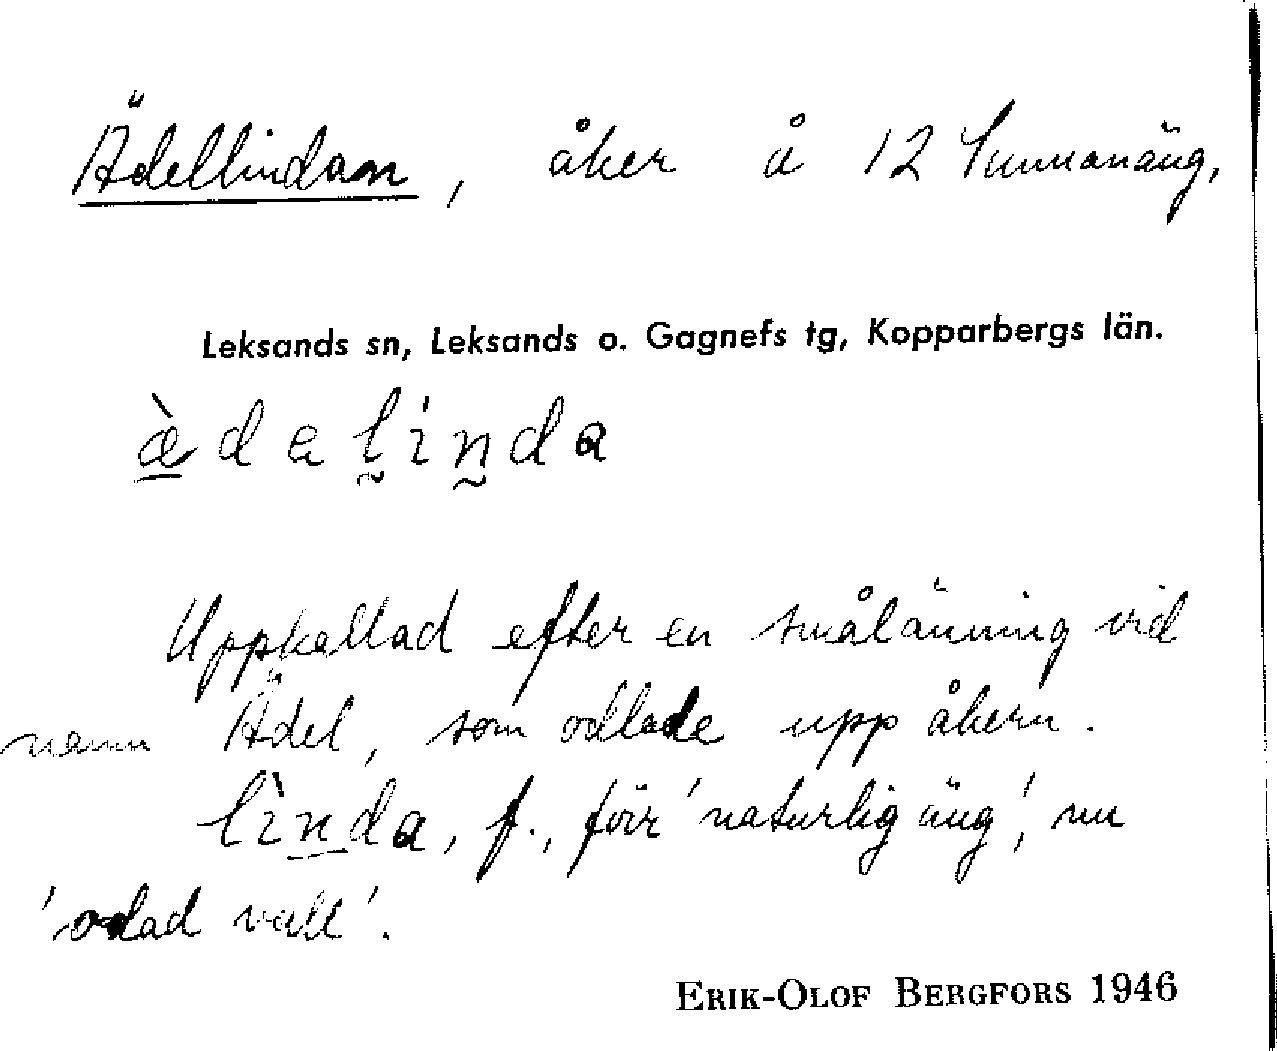 Ädellindan, åker å 12 Sunnanäng,
Leksands sn, Leksands o. Gagnefs tg, Kopparbergs län.
æ̀dalinda
Uppkallad efter en smålänning vid
namn Ädel, som odlade upp åkern.
lìnda, f., förr 'naturlig äng', nu
'odlad vall'.
ERIK-OLOF BERGFORS 1946